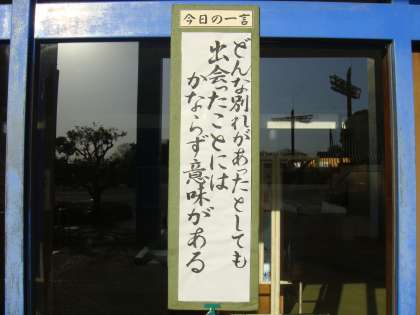 今日の一言
どんな別れがあったとしても
出会ったことには
かならず意味がある